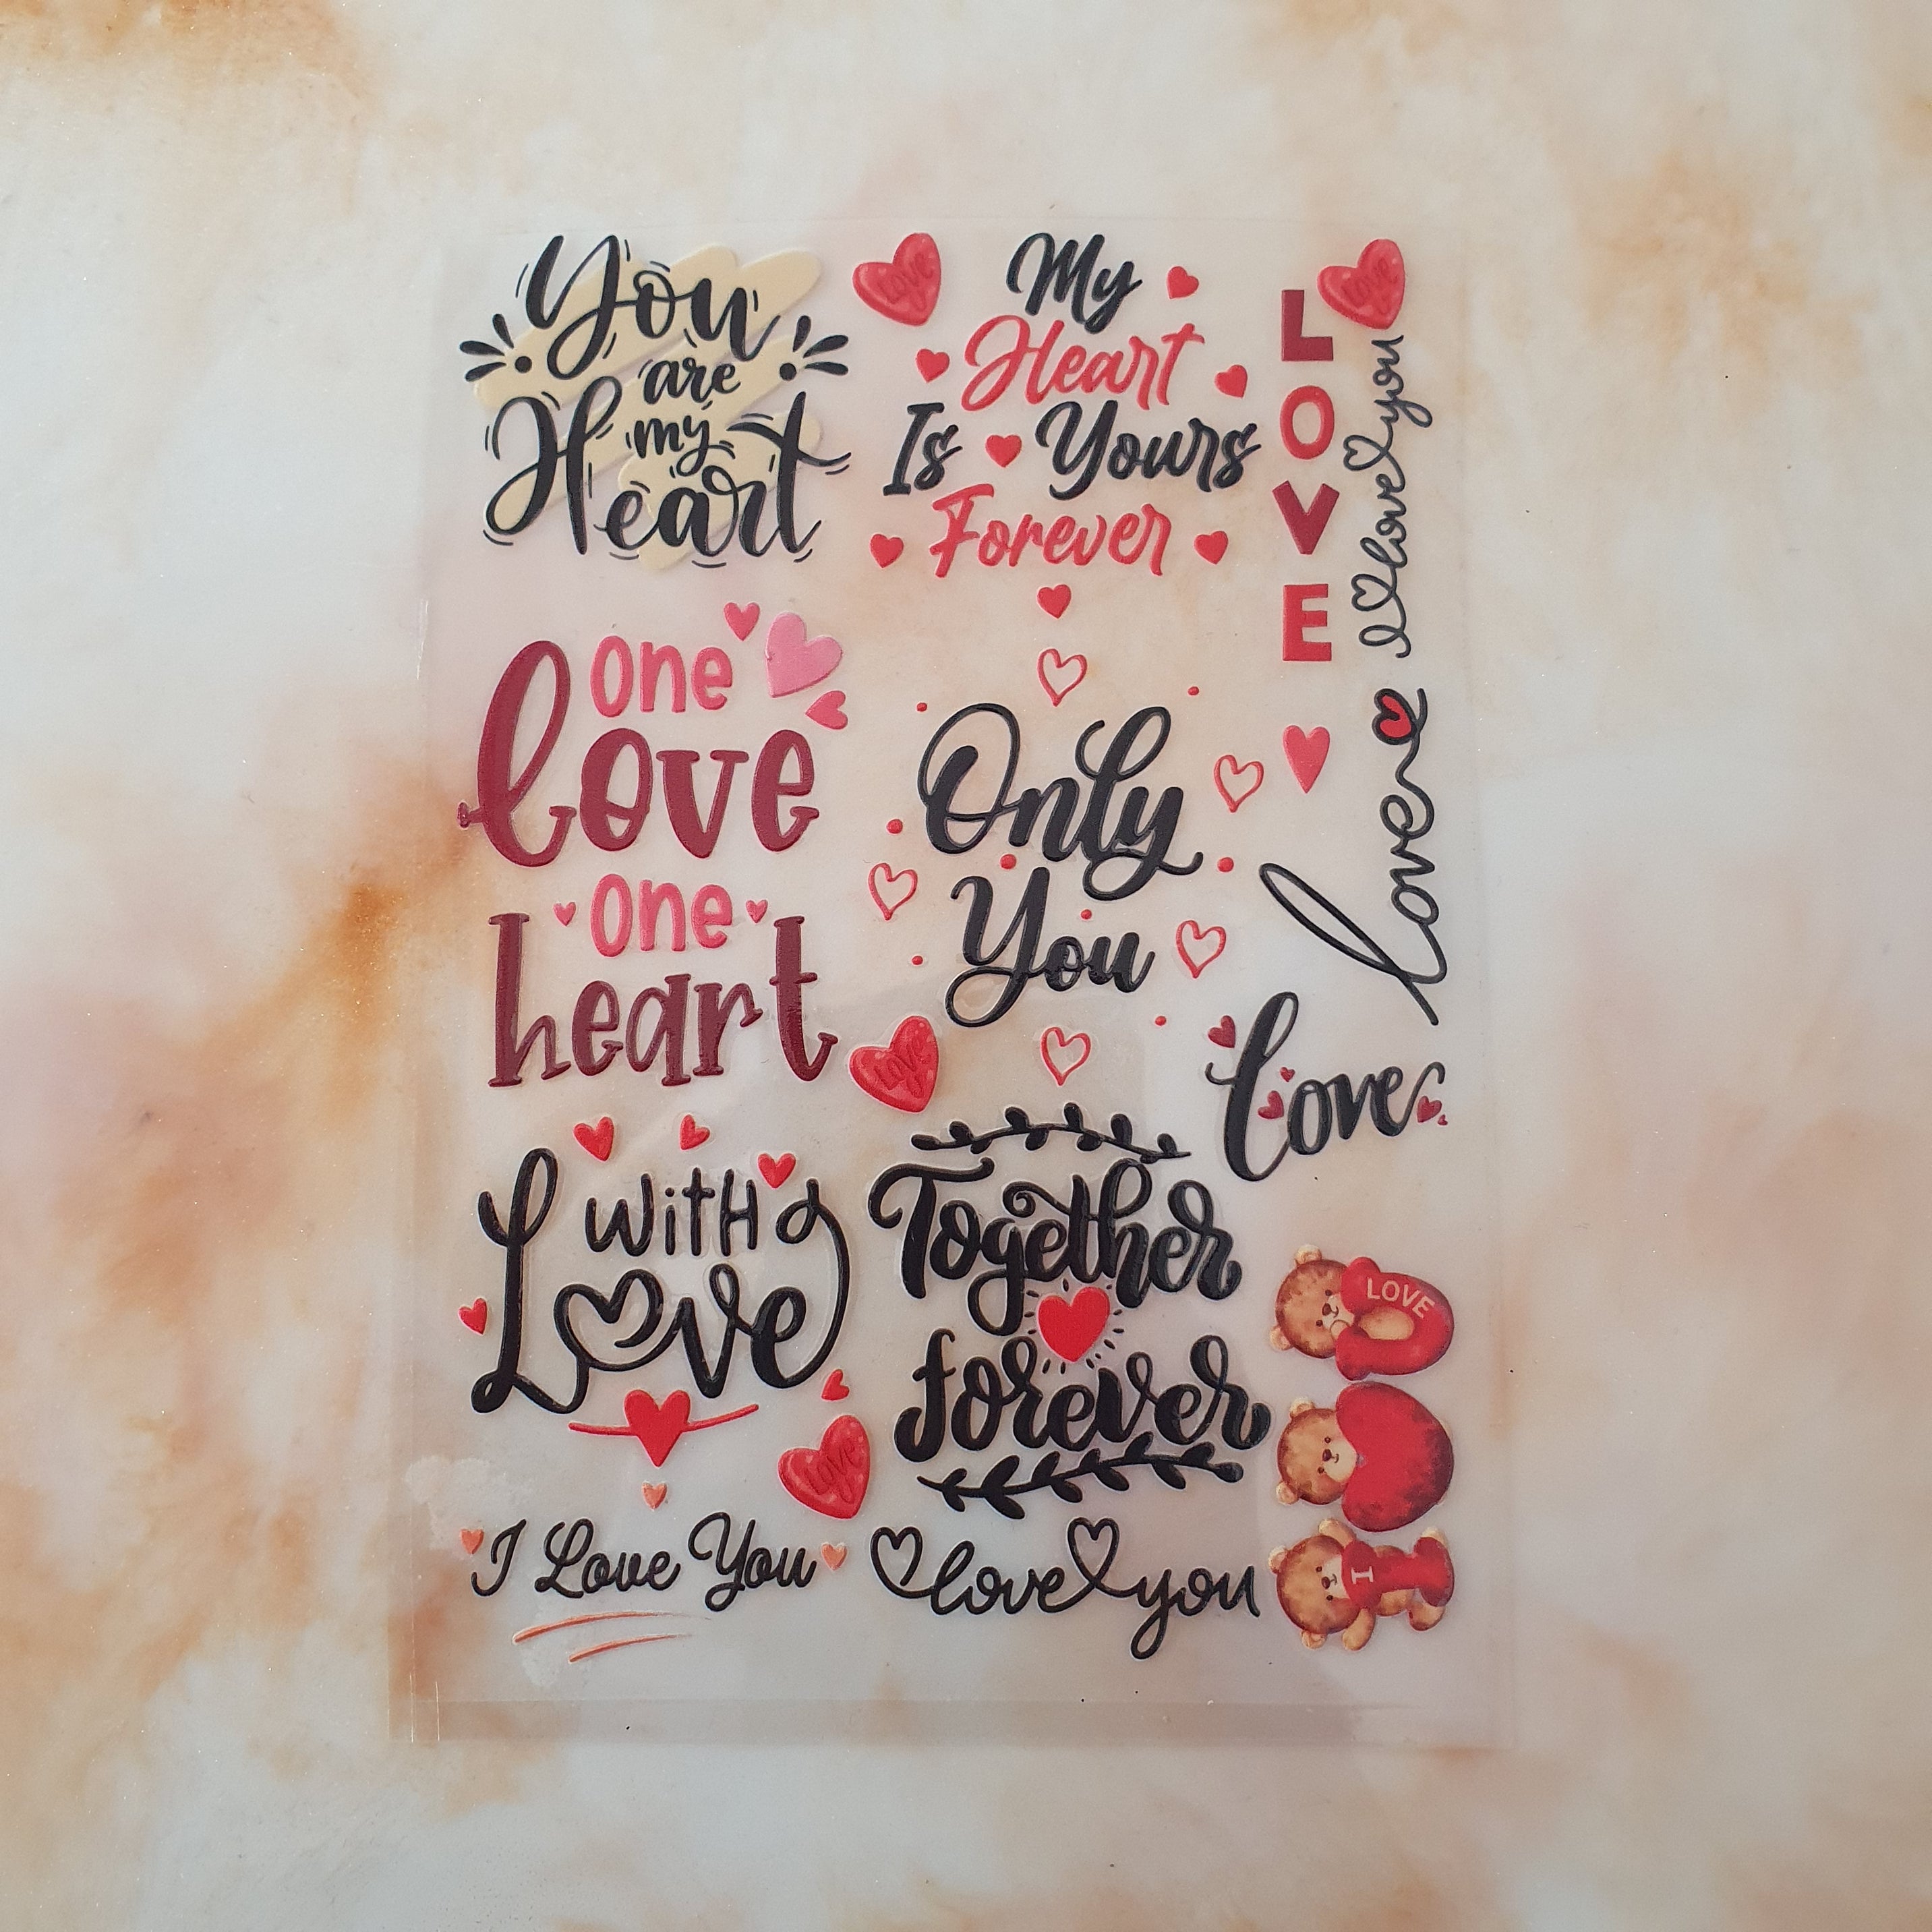 You
are
my
Heart
Love
My
Heart
Is Yours
Forever
Love
L
O
V
E
I love you
one
love
one
heart
Only
You
love
love
Love
with
Love
Together
forever
Love
I Love You
love you
LOVE
I